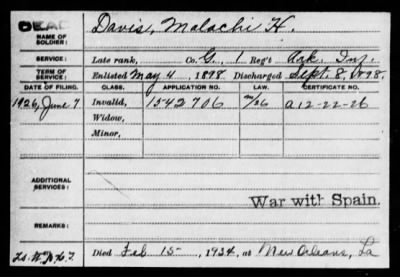 DEAD
NAME OF SOLDIER: Davis, Malachi H.
SERVICE: Late rank, Co. G, 1 Reg't Ark. Inf.
TERM OF SERVICE: Enlisted May 4, 1898. Discharged Sept. 8, 1898.
DATE OF FILING. CLASS. APPLICATION NO. LAW. CERTIFICATE NO.
1926, June 7 Invalid, 1542706 a 12-22-26
Widow,
Minor,
ADDITIONAL SERVICES:
War with Spain.
REMARKS:
Died Feb 15-, 1934, at New Orleans, La